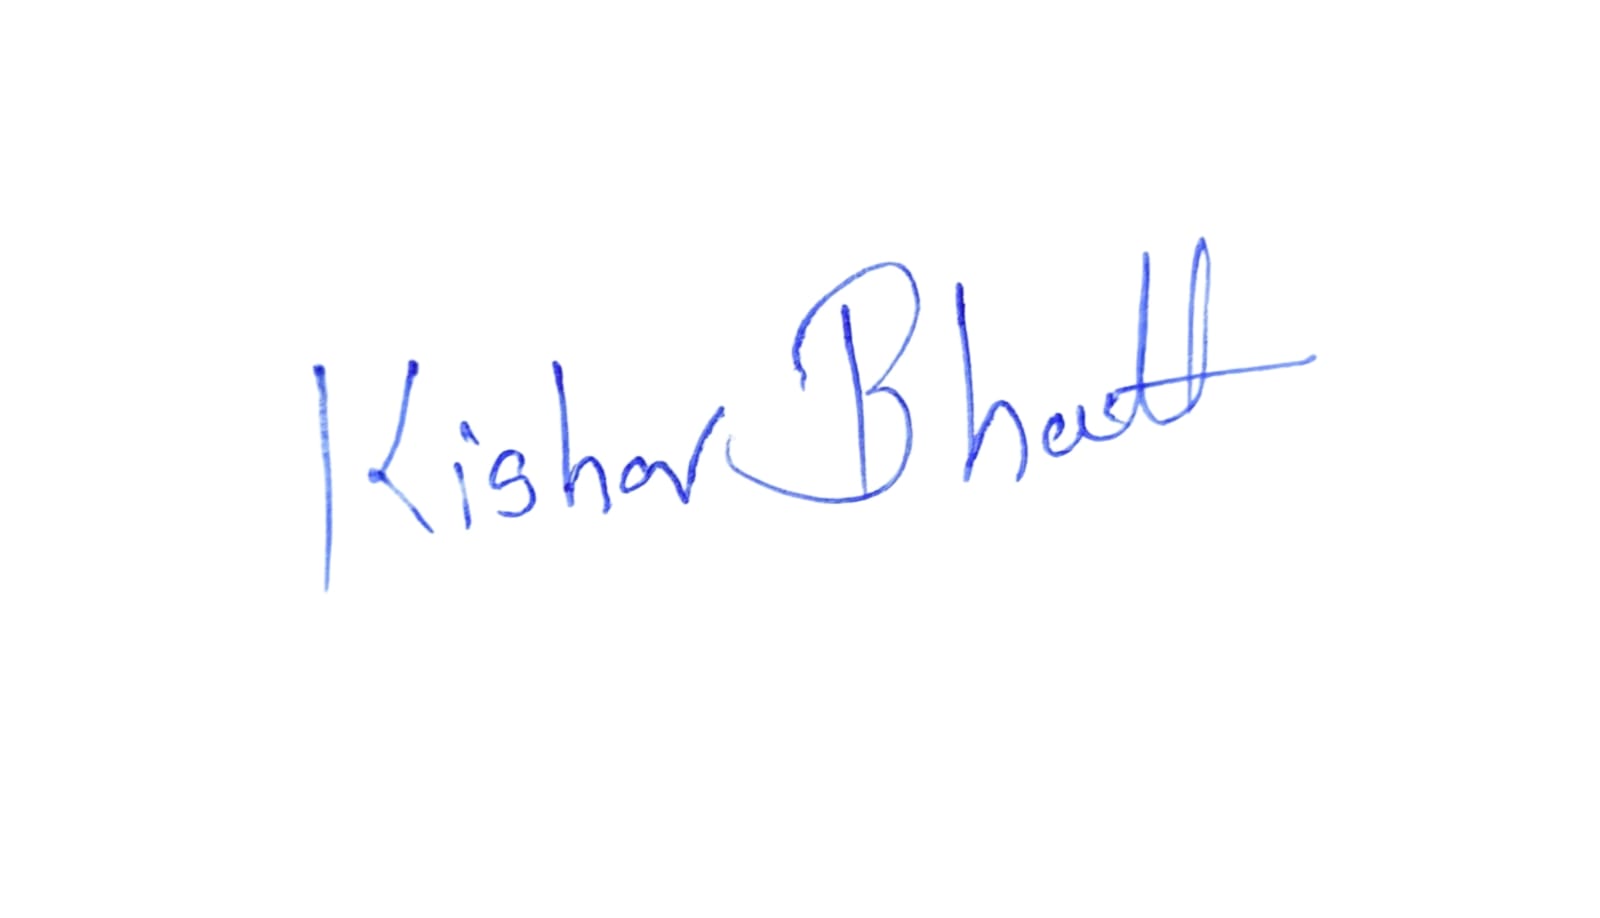 Kishor Bhatt